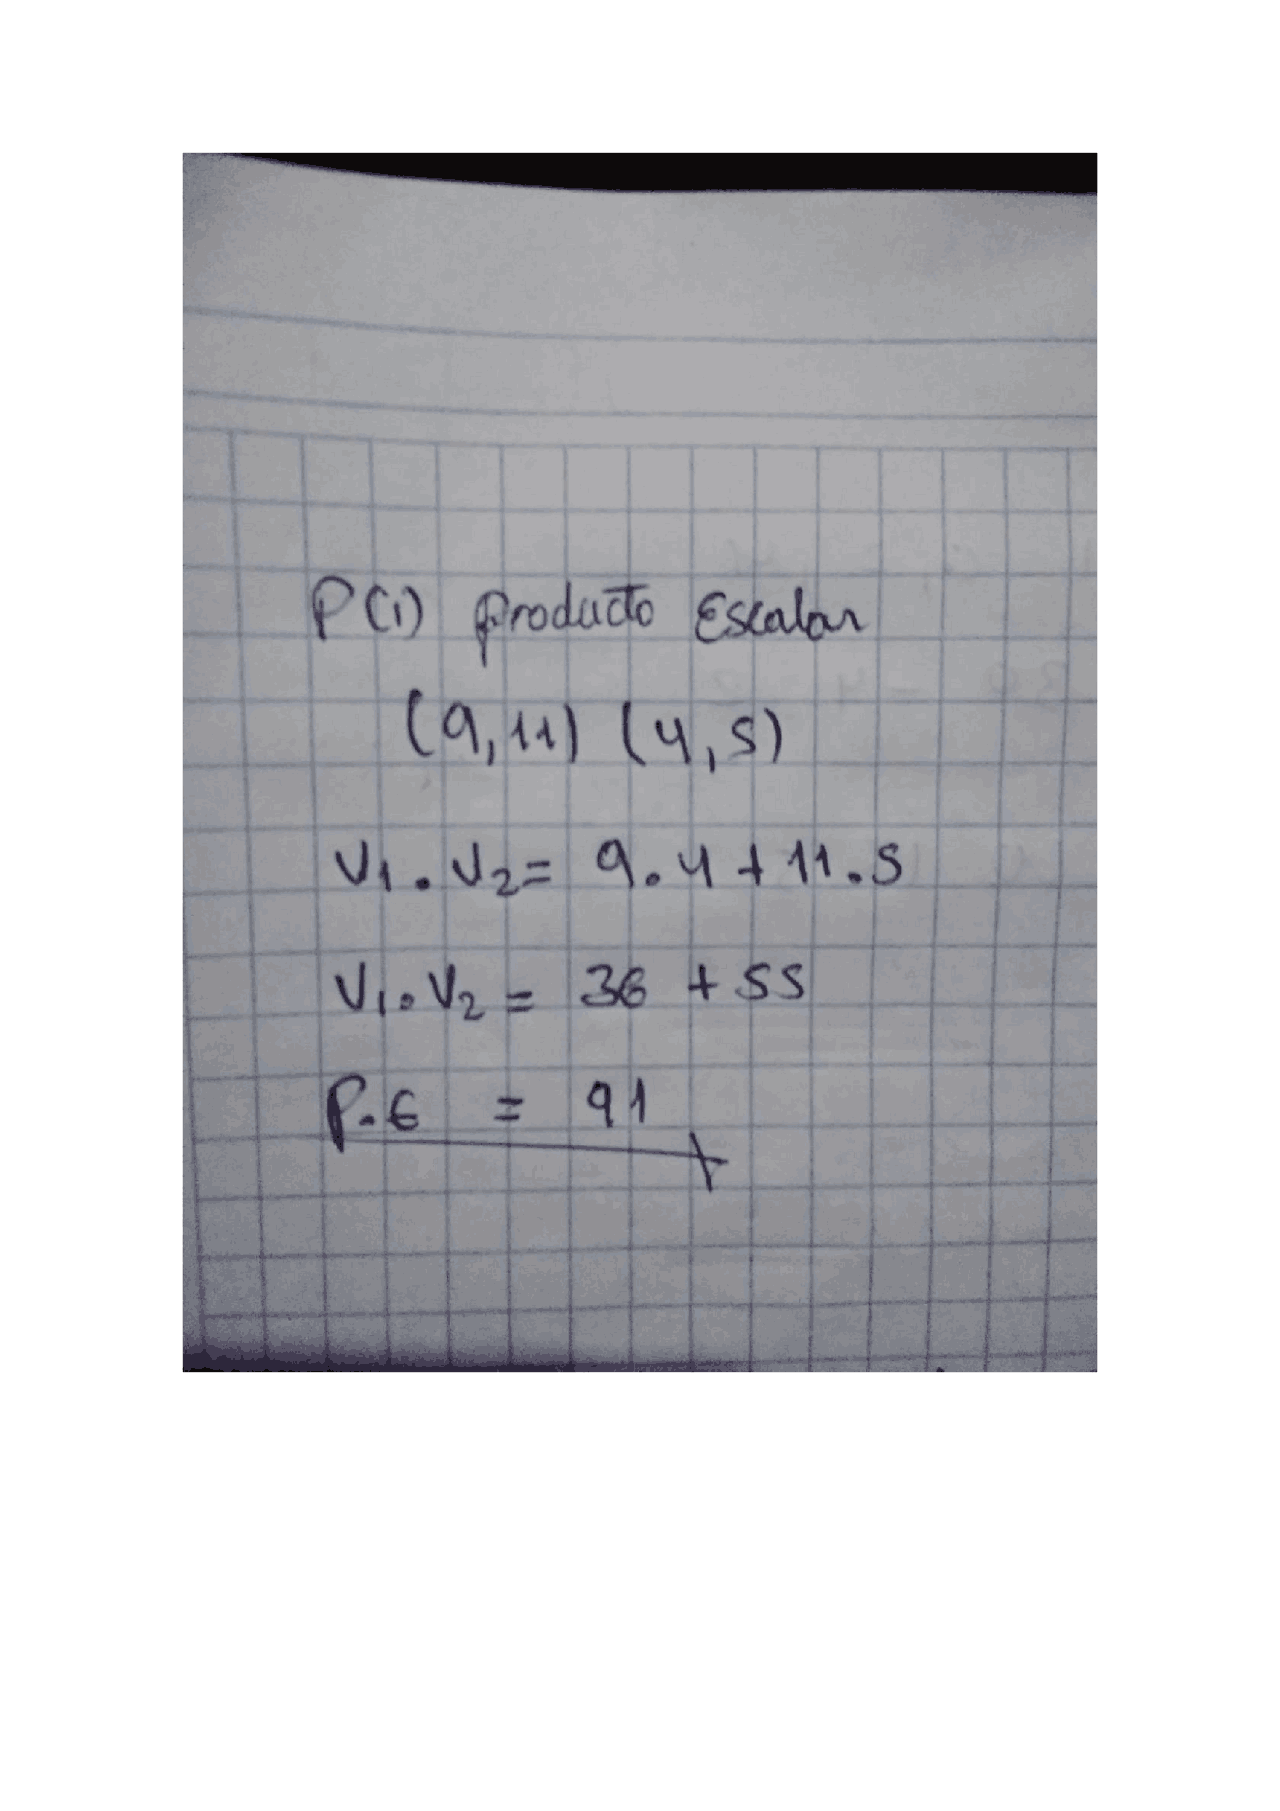 P(1) producto Escalar
(9,11) (4,5)
V1 . V2 = 9.4 + 11.5
V1 . V2 = 36 + 55
P.E = 91